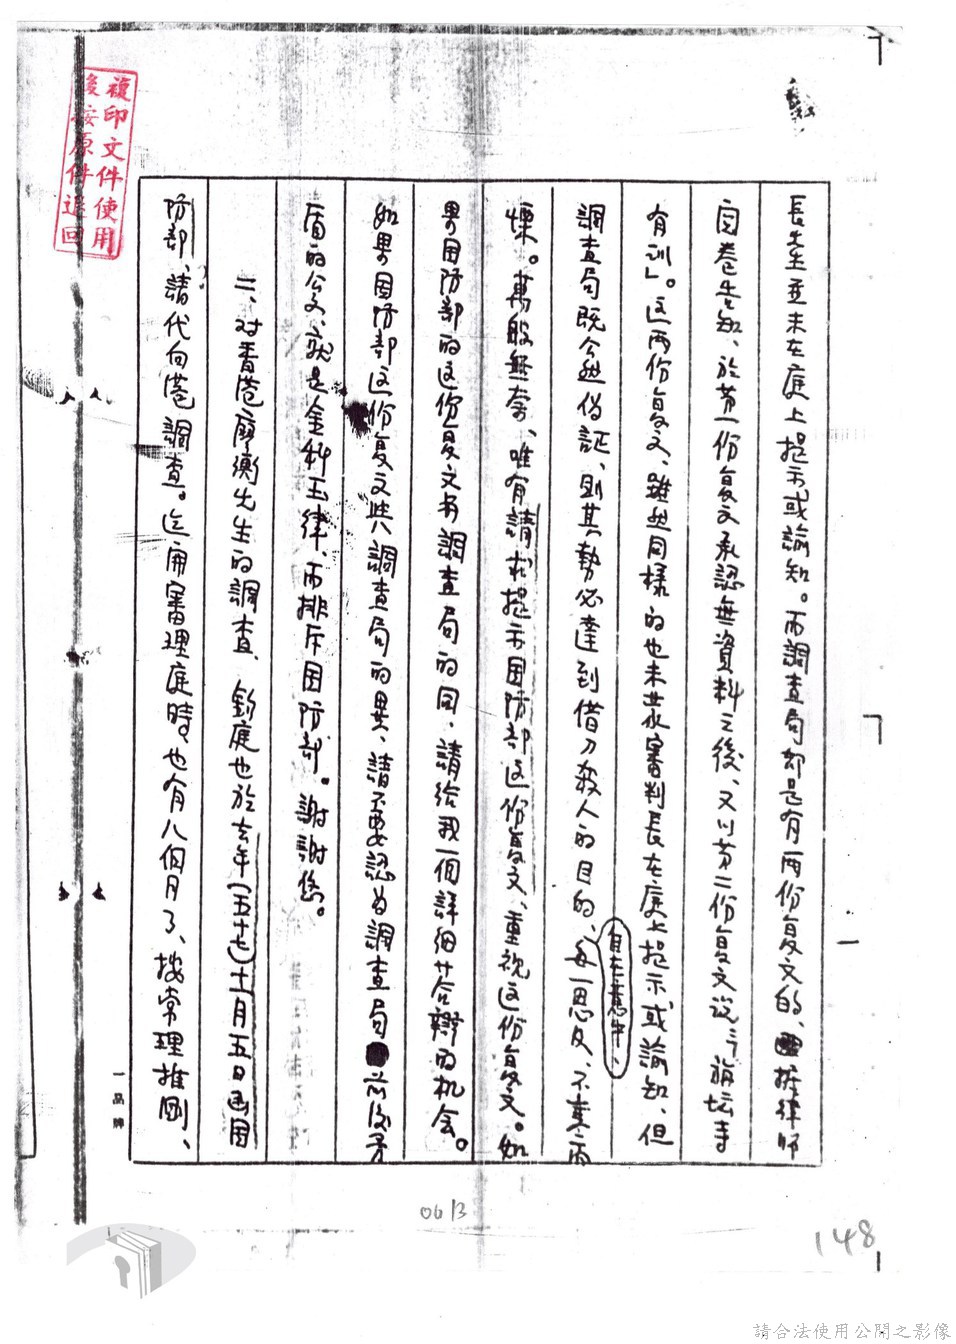 長並未在庭上提示或諭知。而調查局却是有兩份复文的、據律師
閱卷告知、於第一份复文承認無資料之後、又以第二份复文說「檀坛寺
有訓」。这两份复文、雖然同樣的也未蒙審判長在庭上提示或諭知、但
調查局既公然伪証、則其勢必達到借刀殺人的目的、自在意中、每一思及、不寒而
慄。萬般無奈、唯有請求提示国防部这份复文、重視这份复文。如
果国防部的这份复文与調查局的同、請給我一個詳細答辯的机会。
如果国防部这份复文與調查局的異、請不要認为調查局前后矛
盾的公文、就是金科玉律、而排斥国防部。謝謝您。
二、对香港廖衡先生的調查、鈞庭也於去年(五十七)十一月五日函国
防部、請代向港調查。迄開審理庭時、也有八個月了、按常理推測、
複印文件使用
後按原件退回
一品牌
0613
148
請合法使用公開之影像